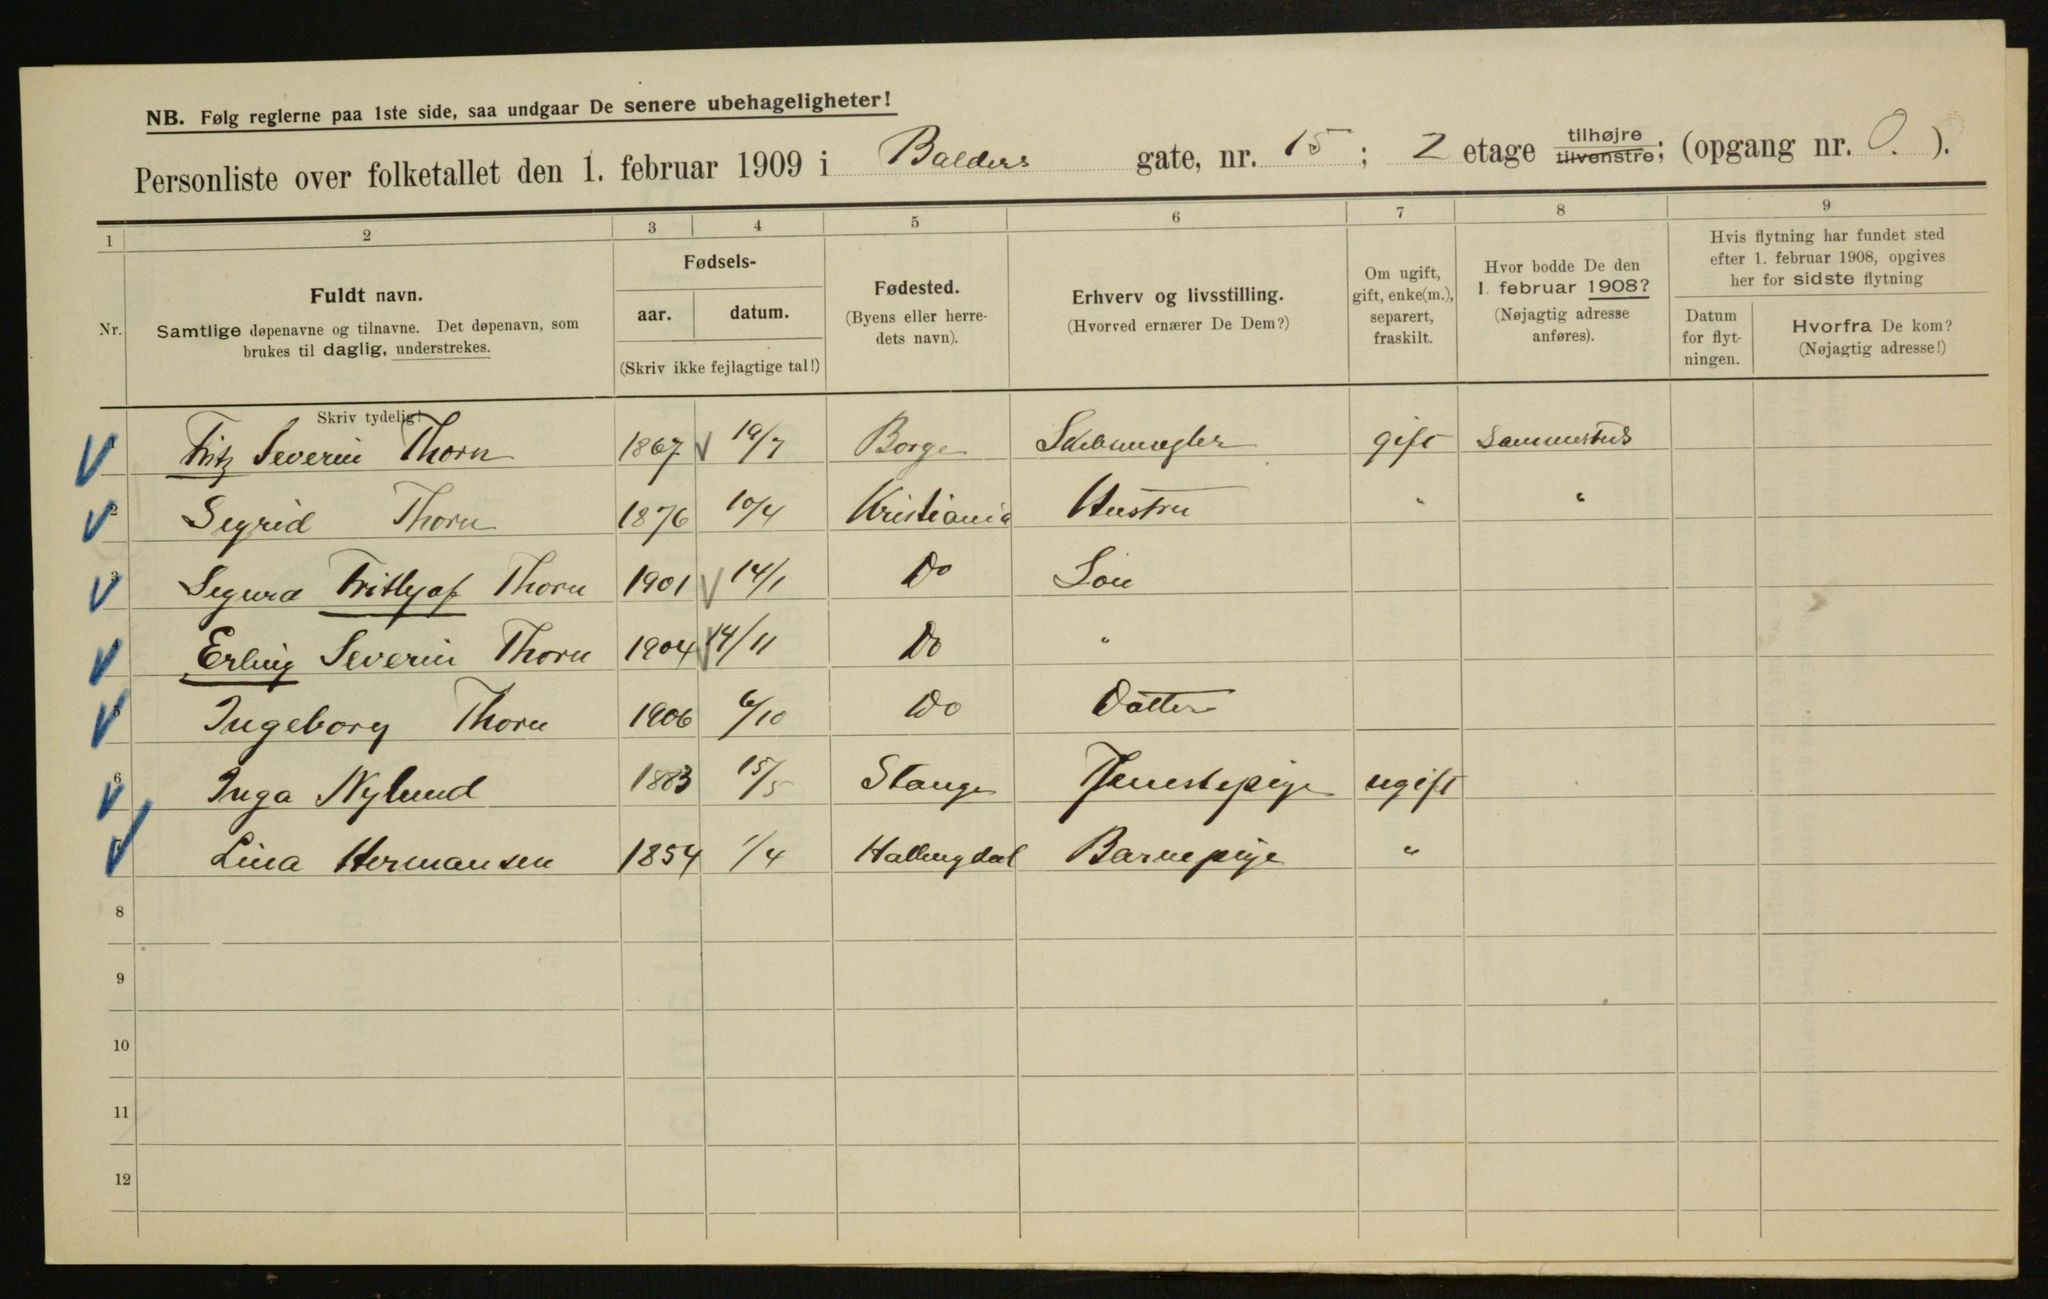 NB. Følg reglerne paa 1ste side, saa undgaar De senere ubehageligheter!
Personliste over folketallet den 1. februar 1909 i Balders gate, nr. 15 ; 2 etage tilhøjre tilvenstre; (opgang nr. O. ).
1 2 3 4 5 6 7 8 9
Nr.
Fuldt navn.
Samtlige døpenavne og tilnavne. Det døpenavn, som
brukes til daglig, understrekes.
Fødsels-
aar. datum.
(Skriv ikke fejlagtige tal!)
Fødested.
(Byens eller herre-
dets navn).
Erhverv og livsstilling.
(Hvorved ernærer De Dem?)
Om ugift,
gift, enke(m.),
separert,
fraskilt.
Hvor bodde De den
1. februar 1908?
(Nøjagtig adresse
anføres).
Hvis flytning har fundet sted
efter 1. februar 1908, opgives
her for sidste flytning
Datum
for flyt-
ningen.
Hvorfra De kom?
(Nøjagtig adresse!)
Skriv tydelig!
1 Fritz Severin Thorn 1867 19/7 Borge Skibsmægler gift Sammesteds
2 Sigrid Thorn 1876 10/4 Kristiania Hustru " "
3 Sigurd Frithjof Thorn 1901 14/1 Do Søn
Erling Severin Thorn 1904 14/11 Do "
5 Ingeborg Thorn 1906 6/10 Do Datter
6 Inga Nylund 1883 15/5 Stange Tjenestepige ugift
7 Lina Hermansen 1854 1/4 Hallingdal Barnepige "
8
9
10
11
12